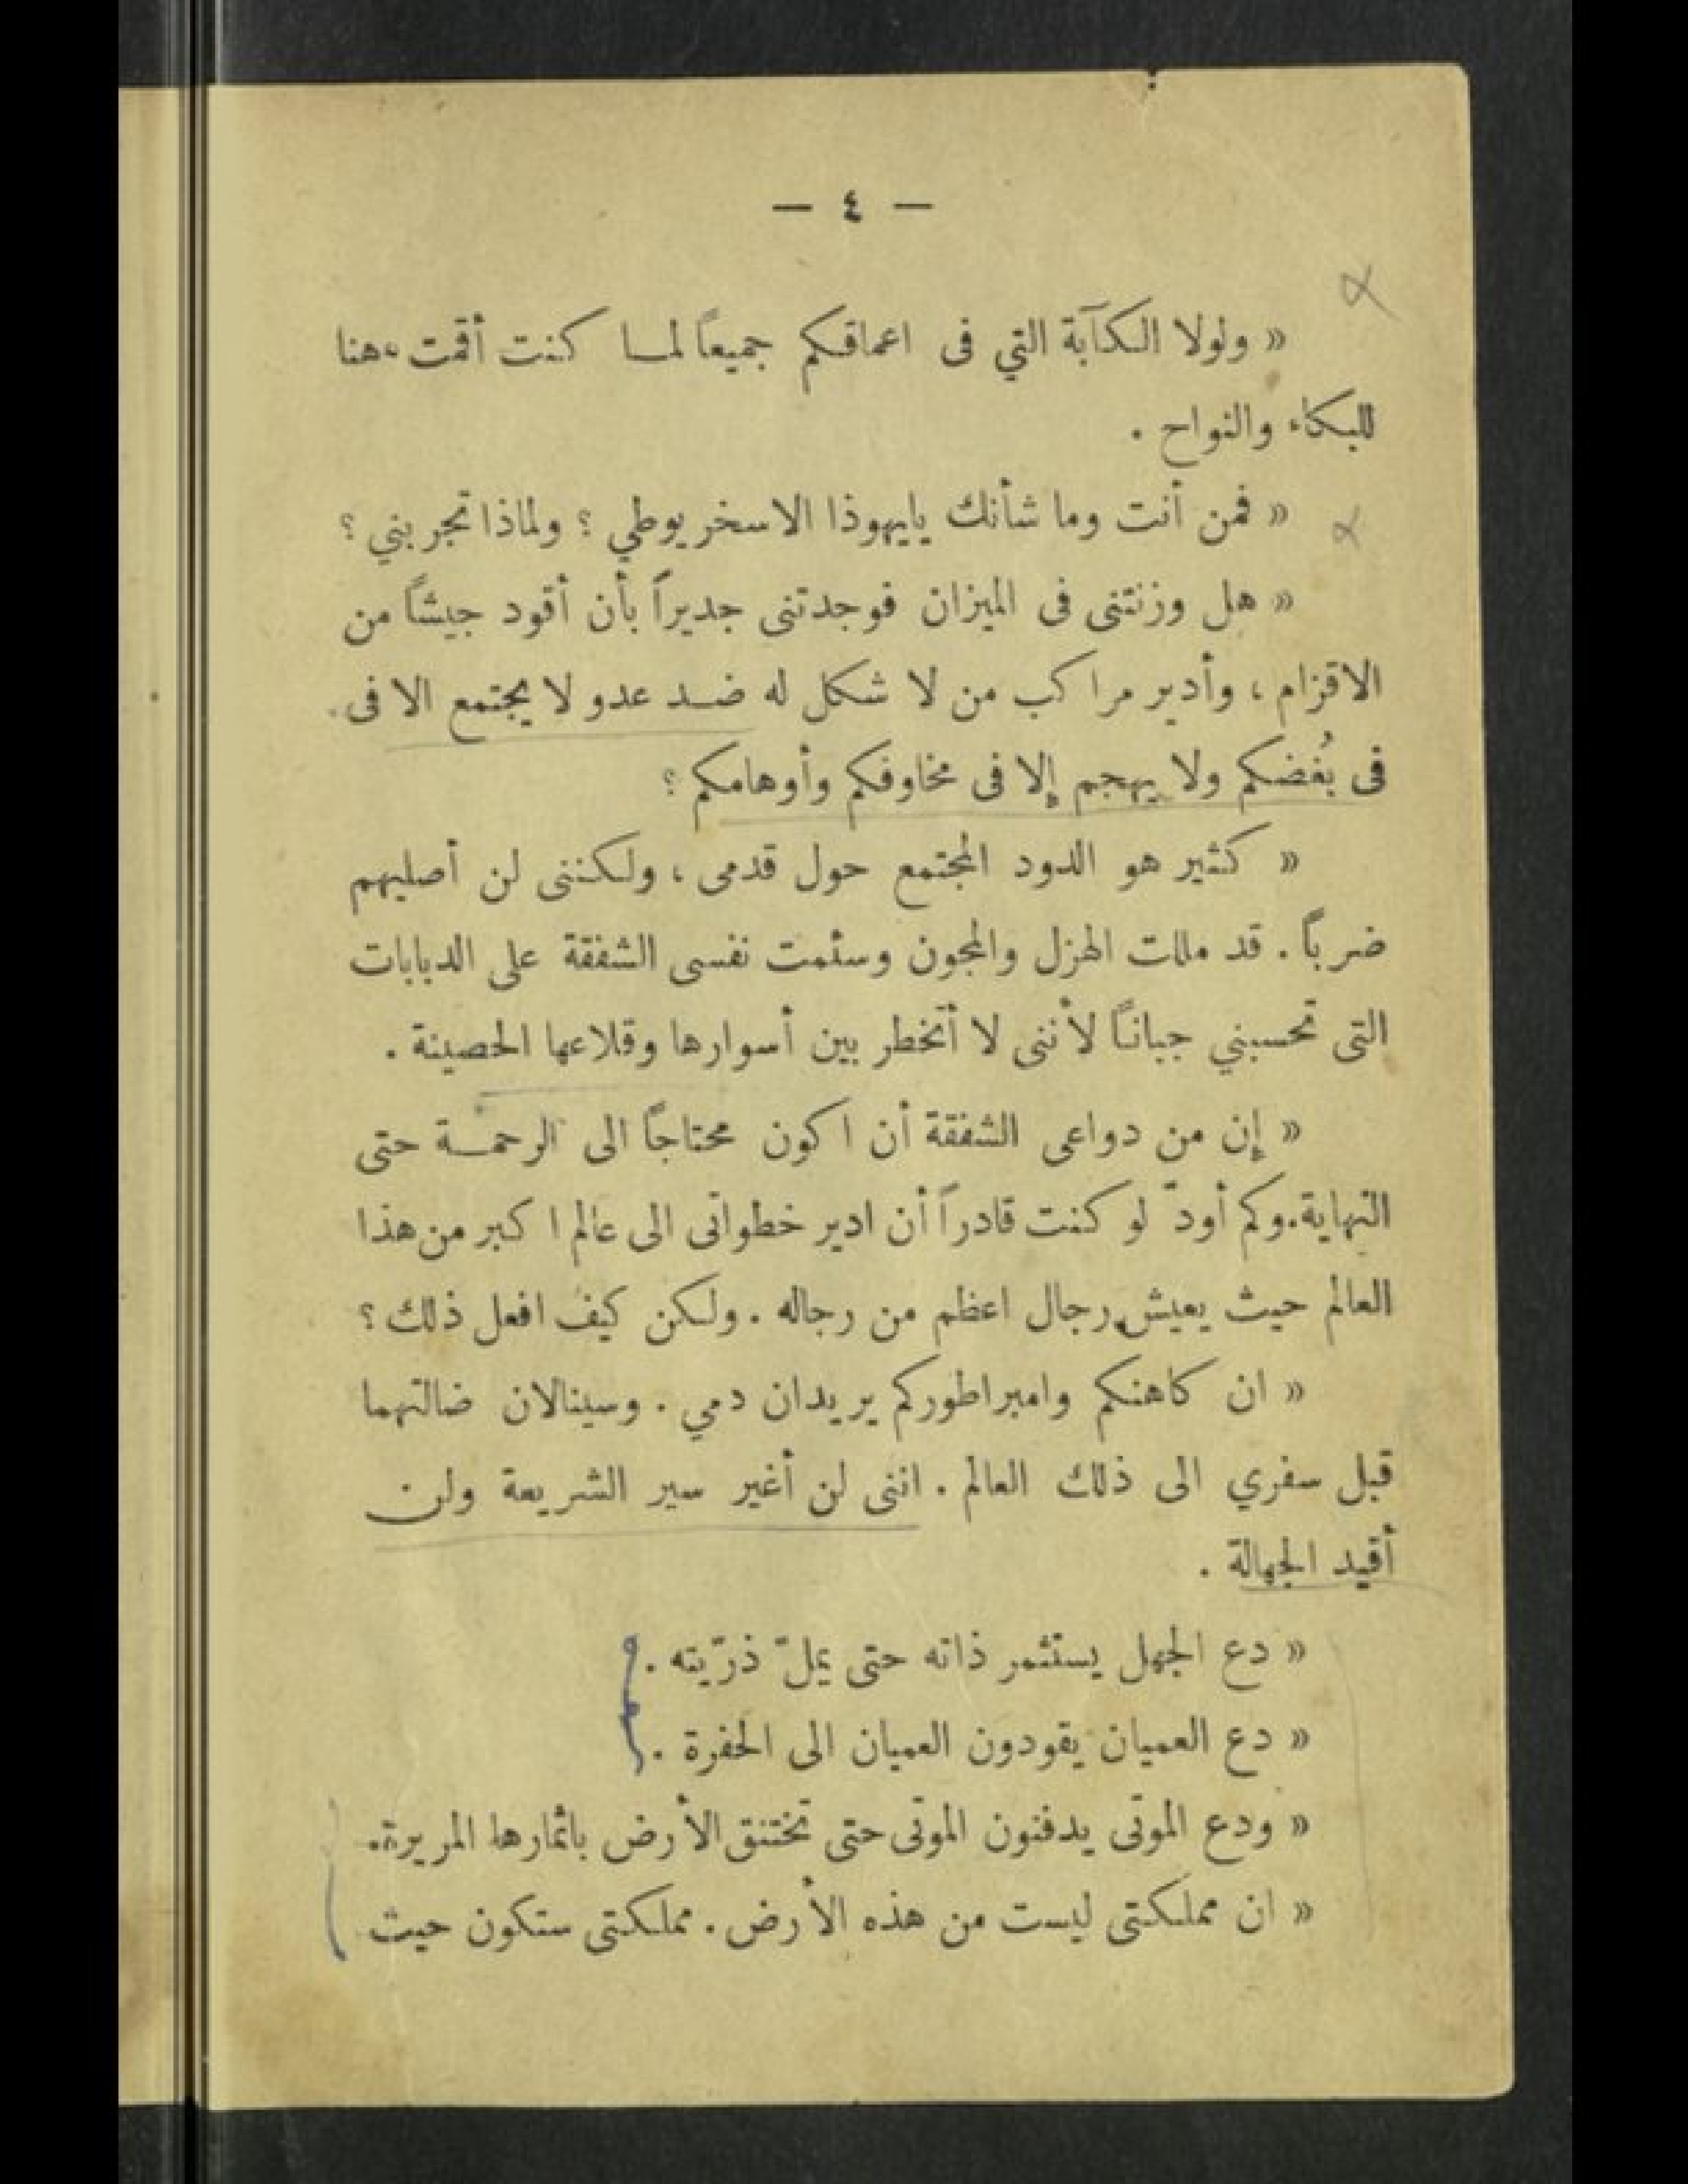 — ٤ —
« ولولا الكآبة التي فى اعماقكم جميعاً لما كنت أقمت هنا
للبكاء والنواح .
« فمن أنت وما شأنك يايهوذا الاسخريوطي ؟ ولماذا تجربني ؟
« هل وزنتنى فى الميزان فوجدتنى جديراً بأن أقود جيشاً من
الاقزام ، وأدير مراكب من لا شكل له ضد عدو لا يجتمع الا فى
فى بُغضكم ولا يهجم إلا فى مخاوفكم وأوهامكم ؟
« كثير هو الدود المجتمع حول قدمى ، ولكننى لن أصليهم
ضرباً . قد مللت الهزل والمجون وسئمت نفسى الشفقة على الدبابات
التى تحسبني جباناً لأننى لا أتخطر بين أسوارها وقلاعها الحصينة .
« إن من دواعى الشفقة أن اكون محتاجاً الى الرحمة حتى
النهاية. وكم أودّ لو كنت قادراً أن ادير خطواتى الى عالم اكبر من هذا
العالم حيث يعيش رجال اعظم من رجاله . ولكن كيف افعل ذلك ؟
« ان كاهنكم وامبراطوركم يريدان دمي . وسينالان ضالتهما
قبل سفري الى ذلك العالم . اننى لن أغير سير الشريعة ولن
أقيد الجهالة .
« دع الجهل يستثمر ذاته حتى يملّ ذرّيته .
« دع العميان يقودون العميان الى الحفرة .
« ودع الموتى يدفنون الموتى حتى تختنق الأرض باثمارها المريرة.
« ان مملكتى ليست من هذه الأرض . مملكتى ستكون حيث